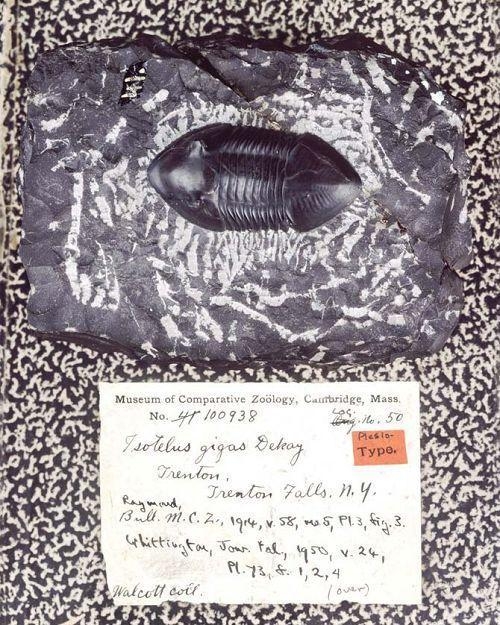 Museum of Comparative Zoölogy, Cambridge, Mass.
No. 100938 Loc. No. 50
Plesio-
Type.
Isotelus gigas Dekay
Trenton,
Trenton Falls. N.Y.
Raymond,
Bull. M.C.Z., 1914, v. 58, no 5, Pl. 3, fig. 3.
Whittington, Jour. Pal., 1950, v. 24,
Pl. 73, f. 1, 2, 4
Walcott coll. (over)